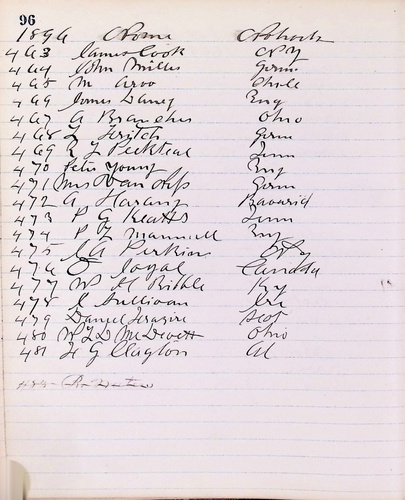 96
1896 Name
463 James Cook NY
464 John Miller Germ
465 M Arvo Chile
469 James Daney Eng
467 A Branches Ohio
468 L Fritch Germ
469 Tenn
470 Felix Young Eng
471 Mrs Van Germ
472 A Harang Bavaria
473 P G Keatts Tenn
474 P Mannell Eng
475 A Perkins NY
476 Joyal Canada
477 W H Bibble Ky
478 J Sullivan Ire
479 Daniel Scot
480 W L D McDevett Ohio
481 H G Clayton Al